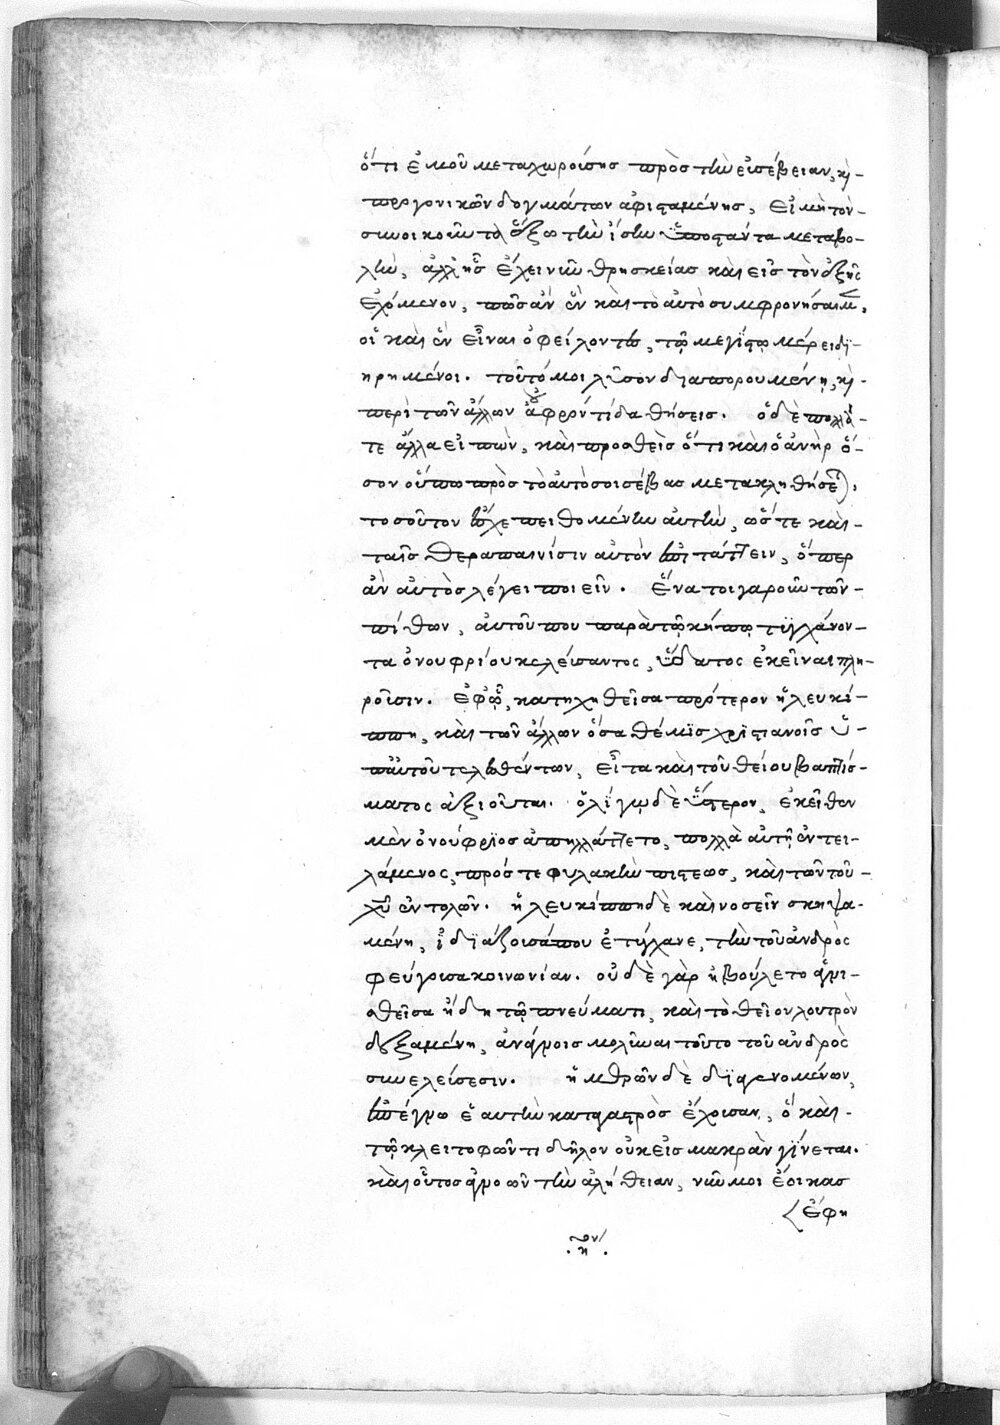 ὅτι ἐμοῦ μεταχωρούσης πρὸς τὴν εὐσέβειαν, κὶ
προγονικῶν δογμάτων ἀφισταμένης, εἰ μὴ τὸν
σύνοικον τὸ ἔξω τὴν ἴσην ὑποστάντα μεταβο-
λὴν, ἀλλ' ἧς ἔχει νῦν θρησκείας καὶ εἰς τὸν ἑξῆς
ἐχόμενον, πῶς ἂν ἓν καὶ τὸ αὐτὸ συμφρονήσαιμεν,
οἱ καὶ ἓν εἶναι ὀφείλοντες, τῷ μεγίστῳ μέρει δι-
ηρημένοι. τοῦτό μοι λῦσον διαπορουμένῃ, κὶ
περὶ τῶν ἄλλων ἀφρόντιδα θήσεις. ὁ δὲ πολλά
τε ἄλλα εἰπὼν, καὶ προσθεὶς ὅτι καὶ ὁ ἀνὴρ ὅ-
σον οὔπω πρὸς τὸ αὐτό σοι σέβας μετακληθήσεται,
τοσοῦτον ἔσχε πειθομένην αὐτὴν, ὥστε καὶ
ταῖς θεραπαινίσιν αὐτὸν ἐπιτάττειν, ὅπερ
ἂν αὐτὸς λέγει ποιεῖν. ἕνα τοιγαροῦν τῶν
πίθων, αὐτοῦ που παρὰ τῷ κήπῳ τυγχάνον-
τα ὀνουφρίου κελεύσαντος, ὕδατος ἐκεῖναι πλη-
ροῦσιν. ἐφ' ᾧ, κατηχηθεῖσα πρότερον ἡ λευκί-
ππη, καὶ τῶν ἄλλων ὅσα θέμις χριστιανοῖς ὑ-
π' αὐτοῦ τελεσθέντων, εἶτα καὶ τοῦ θείου βαπτίσ-
ματος ἀξιοῦται. ὀλίγῳ δὲ ὕστερον, ἐκεῖθεν
μὲν ὀνούφριος ἀπηλλάττετο, πολλὰ αὐτῇ ἐντει-
λάμενος, πρός τε φυλακὴν πίστεως, καὶ τῶν τοῦ
χυ ἐντολῶν. ἡ λευκίππη δὲ καὶ νοσεῖν σκηψα-
μένη, ἰδιάζουσά που ἐτύγχανε, τὴν τοῦ ἀνδρὸς
φεύγουσα κοινωνίαν. οὐδὲ γὰρ ἠβούλετο
θεῖσα ἤδη τῷ πνεύματι, καὶ τὸ θεῖον λουτρὸν
δεξαμένη, ἀνάγνοις μολῦναι τοῦτο τοῦ ἀνδρὸς
συνελεύσεσιν. ἡμερῶν δὲ διαγενομένων,
ἐπέγνω ἑαυτὴν κατὰ γαστρὸς ἔχουσαν, ὃ καὶ
τῷ κλειτοφῶντι δῆλον οὐκ εἰς μακρὰν γίνεται.
καὶ οὗτος ἀγνοῶν τὴν ἀλήθειαν, νῦν μοι ἔοικας
ἔφη